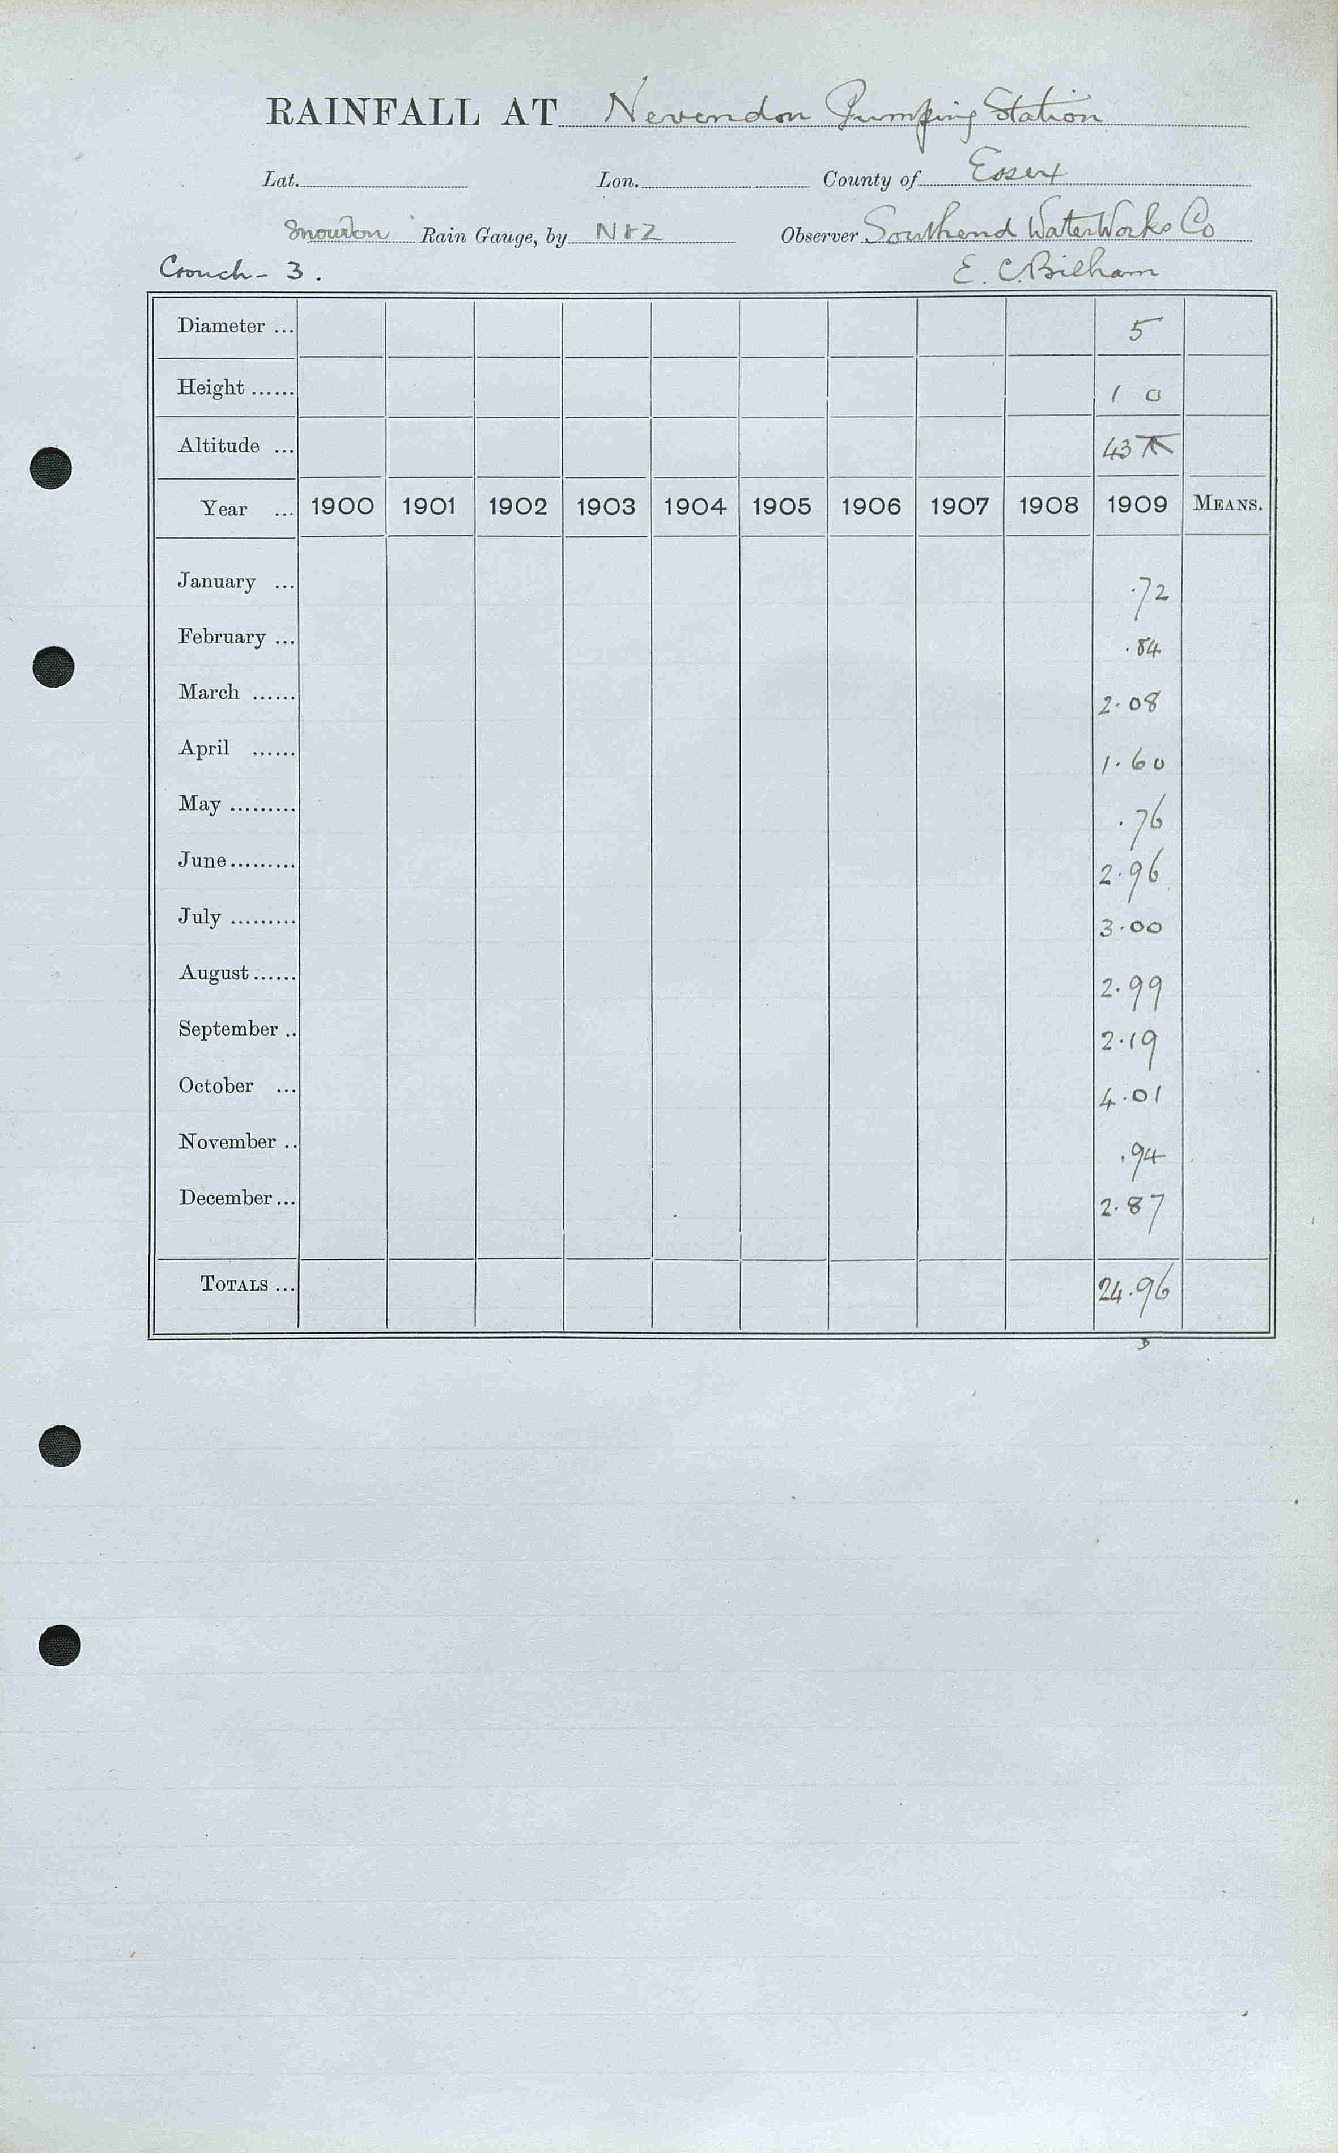 RAINFALL AT Nevendon Pumping Station
Lat. Lon. County of Essex
Snowdon Rain Gauge, by N & Z Observer Southend WaterWorks Co
Crouch - 3. E. C. Bilham
Diameter ... 5
Height ...... 1 0
Altitude ... 43
Year ... 1900 1901 1902 1903 1904 1905 1906 1907 1908 1909 MEANS.
January ... .72
February ... .84
March ...... 2.08
April ...... 1.60
May ......... .76
June ......... 2.96
July ......... 3.00
August ...... 2.99
September .. 2.19
October ... 4.01
November .. .94
December ... 2.87
TOTALS ... 24.96